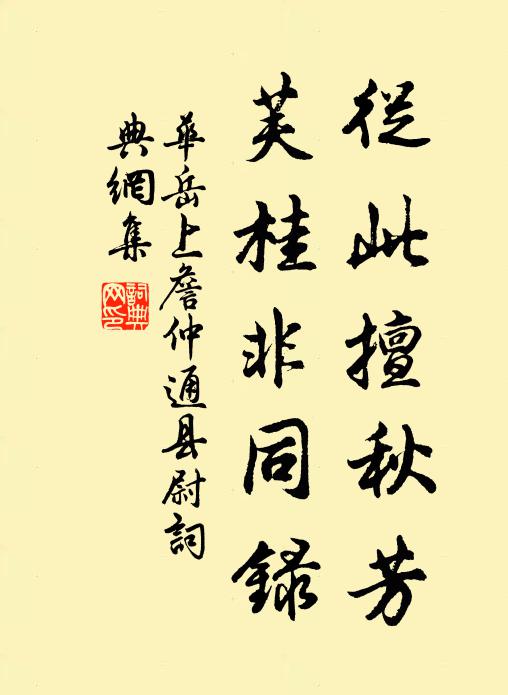 從此擅秋芳
芙桂非同錄
華岳上詹仲通县尉詞
典網集
詞典網印